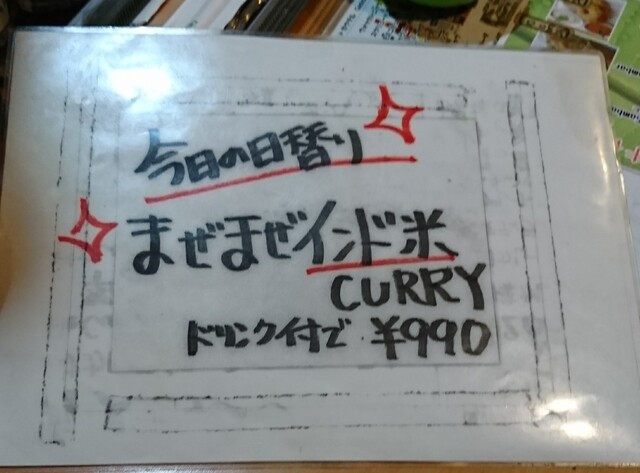 今日の日替り
まぜまぜインド米
CURRY
ドリンク付で ¥990